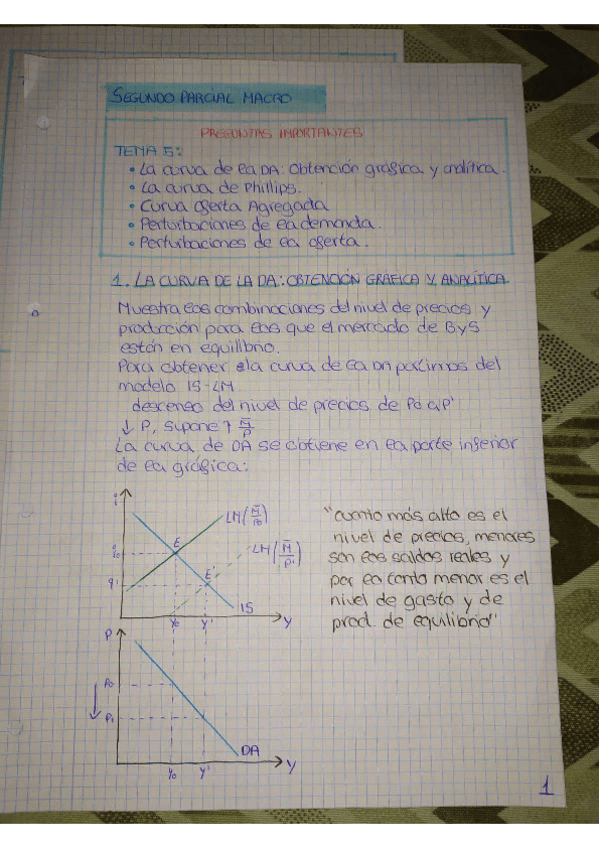 SEGUNDO PARCIAL MACRO
PREGUNTAS IMPORTANTES
TEMA 5:
• La curva de la DA: Obtención gráfica y analítica.
• La curva de Phillips.
• Curva Oferta Agregada
• Perturbaciones de la demanda.
• Perturbaciones de la oferta.
1. LA CURVA DE LA DA: OBTENCIÓN GRÁFICA Y ANALÍTICA
Muestra las combinaciones del nivel de precios y
producción para los que el mercado de ByS
están en equilibrio.
Para obtener la curva de la DA partimos del
modelo IS-LM
descenso del nivel de precios de P0 a P'
↓ P, supone ↑ M̄/P
La curva de DA se obtiene en la parte inferior
de la gráfica:
i
LM(M̄/P0)
"cuanto más alto es el
nivel de precios, menores
E
LM(M̄/P1)
son los saldos reales y
i0
por lo tanto menor es el
E'
nivel de gasto y de
IS
prod. de equilibrio"
Y0 Y' Y
P
P0
P1
DA
Y0 Y' Y
1